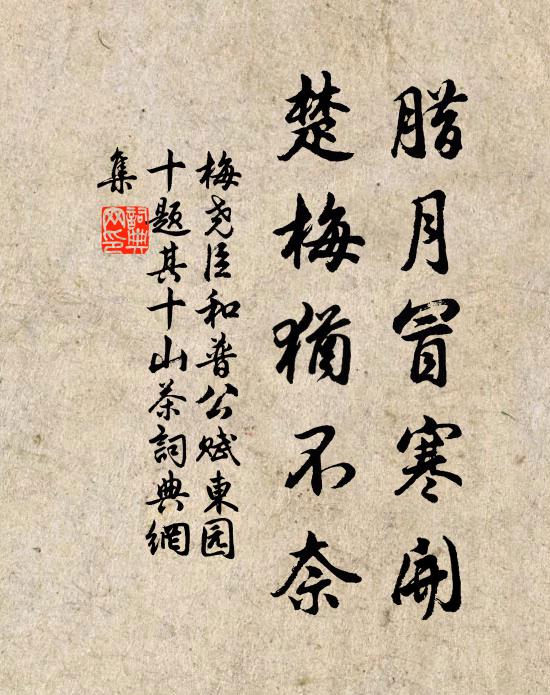 腊月冒寒開
楚梅猶不奈
梅尧臣和普公赋東园
十题其十山茶詞典網
集
詞典网印